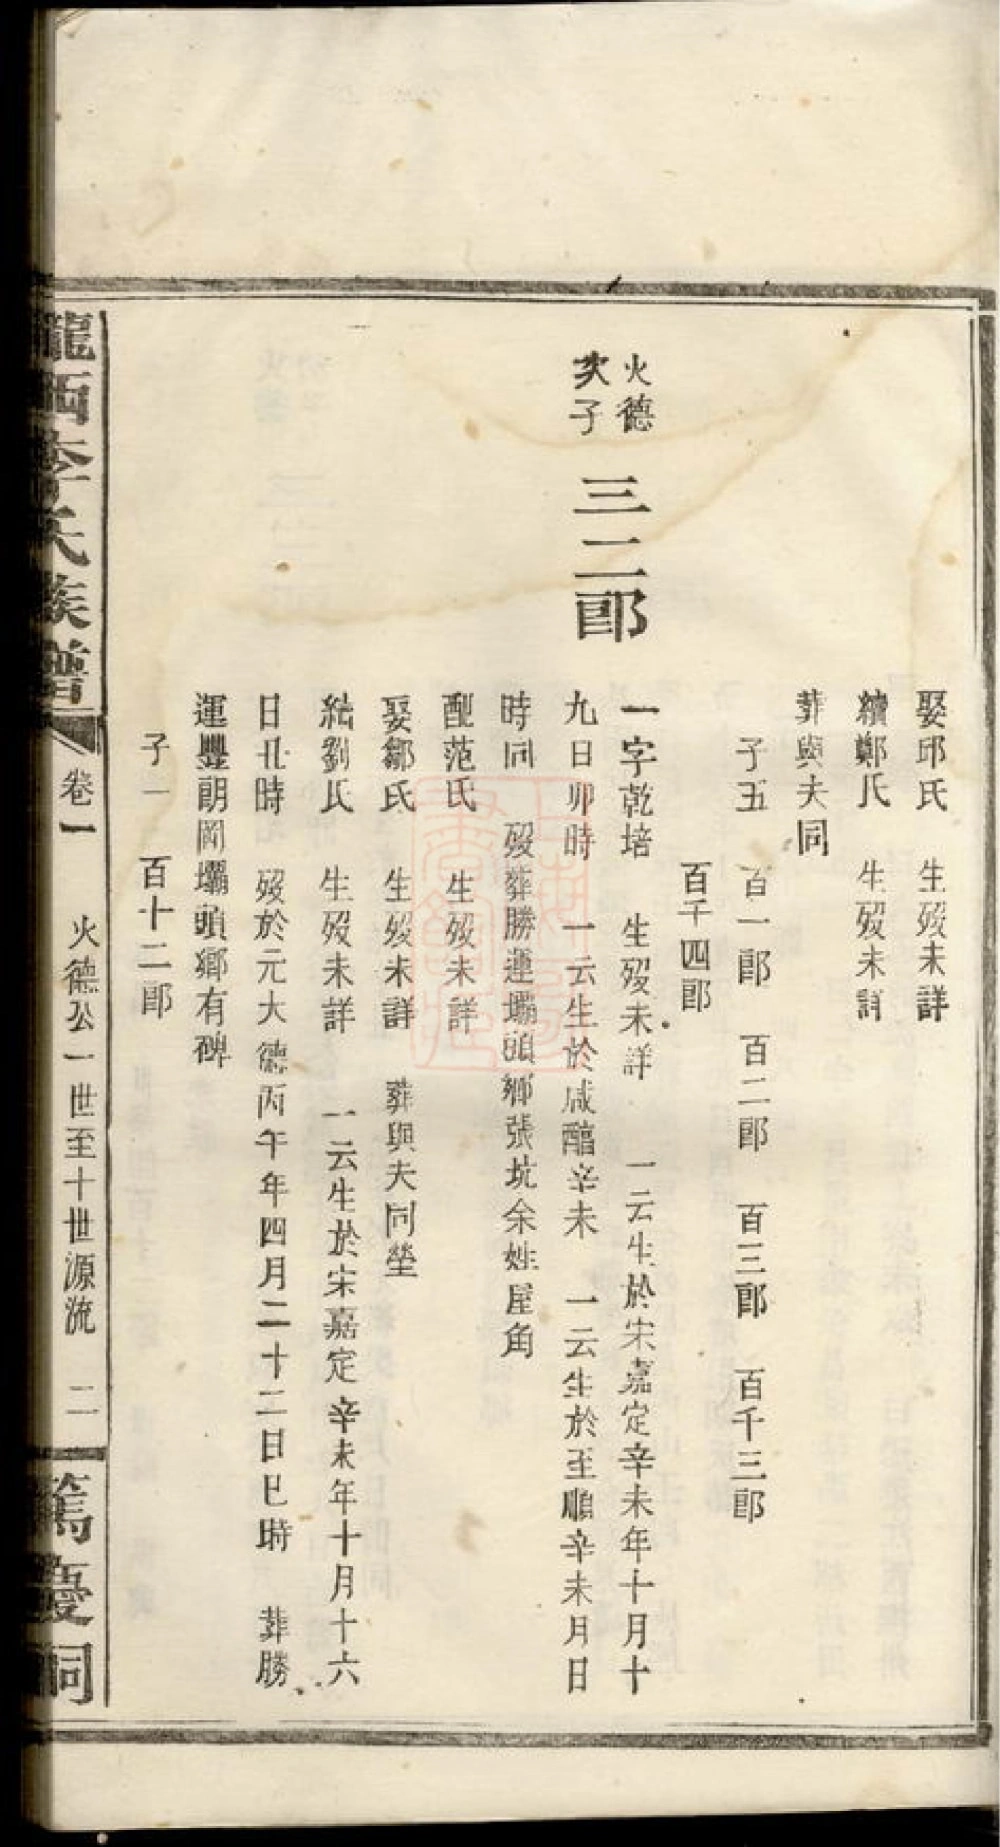 娶邱氏 生歿未詳
續鄭氏 生歿未詳
葬與夫同
子五 百一郎 百二郎 百三郎 百千三郎
百千四郎
火德
次子 三二郎
一字乾培 生歿未詳 一云生於宋嘉定辛未年十月十
九日卯時 一云生於咸醕辛未 一云生於至順辛未月日
時同 歿葬勝運壩頭鄉張坑余姓屋角
配范氏 生歿未詳
娶鄒氏 生歿未詳 葬與夫同塋
續劉氏 生歿未詳 一云生於宋嘉定辛未年十月十六
日丑時 歿於元大德丙午年四月二十二日巳時 葬勝
運豐朗岡壩頭鄉有碑
子一 百十二郎
隴西李氏族譜 卷一 火德公一世至十世源流 二 篤慶祠